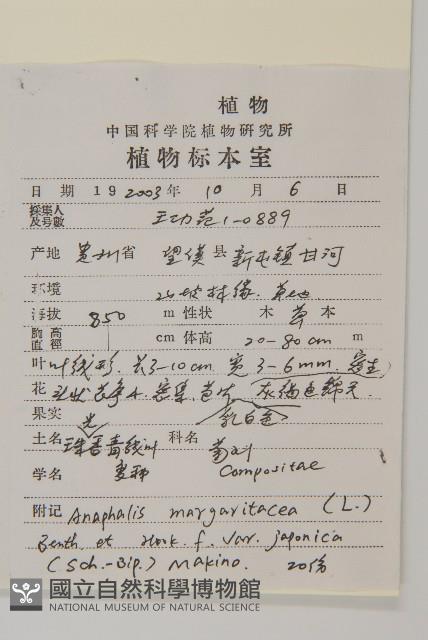 植物
中国科学院植物研究所
植物标本室
日期 19 2003年 10月 6日
採集人及号數 王功芳 1-0889
产地 贵州省 望谟县 新屯镇甘河
环境 山坡林缘. 草地
海拔 850 m 性状 木 草 本
胸高直径 cm 体高 20-80cm m
叶 叶线形. 长3-10cm 宽3-6mm. 密生
花 密集. 苞片 灰褐色绵毛.
果实 乳白色
土名 珠光香青线叶变种 科名 菊科
学名 Compositae
附记 Anaphalis margaritacea (L.)
Benth. et Hook. f. var. japonica
(Sch.-Bip.) Makino. 20份
國立自然科學博物館
NATIONAL MUSEUM OF NATURAL SCIENCE